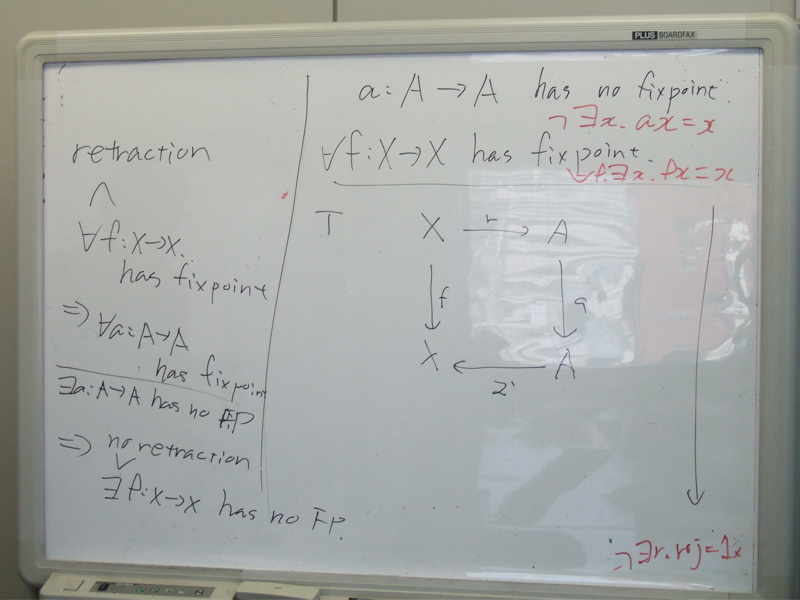 PLUS BOARDFAX
retraction
∧
∀f:X→X.
has fixpoint
⇒ ∀a:A→A
has fixpoint
∃a:A→A has no FP
⇒ no retraction
∨
∃f:X→X has no FP.
a:A→A has no fixpoint.
¬∃x. ax=x
∀f:X→X has fixpoint.
∀f.∃x. fx=x
T X r A
f a
X i A
¬∃r. roj=1x